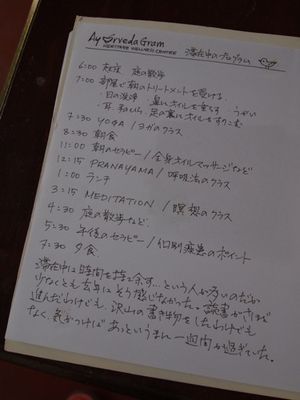 AyurvedaGram
HERITAGE WELLNESS CENTRE
滞在中のプログラム
6:00 起床 庭の散歩
7:00 部屋で朝のトリートメントを受ける
・目の洗浄 ・鼻にオイルを垂らす ・うがい
・耳、手のひら、足の裏にオイルをすりこむ
7:30 YOGA / ヨガのクラス
8:30 朝食
11:00 朝のセラピー / 全身オイルマッサージなど
12:15 PRANAYAMA / 呼吸法のクラス
1:00 ランチ
3:15 MEDITATION / 瞑想のクラス
4:30 庭の散歩など
5:30 午後のセラピー / 個別疾患のポイント
7:30 夕食
滞在中は時間を持て余す…という人が多いのだが
少なくとも去年はそう感じなかった。読書がさほど
進んだわけでも、沢山の書き物をしたわけでも
なく、気がつけばあっというまに一週間が過ぎていた。